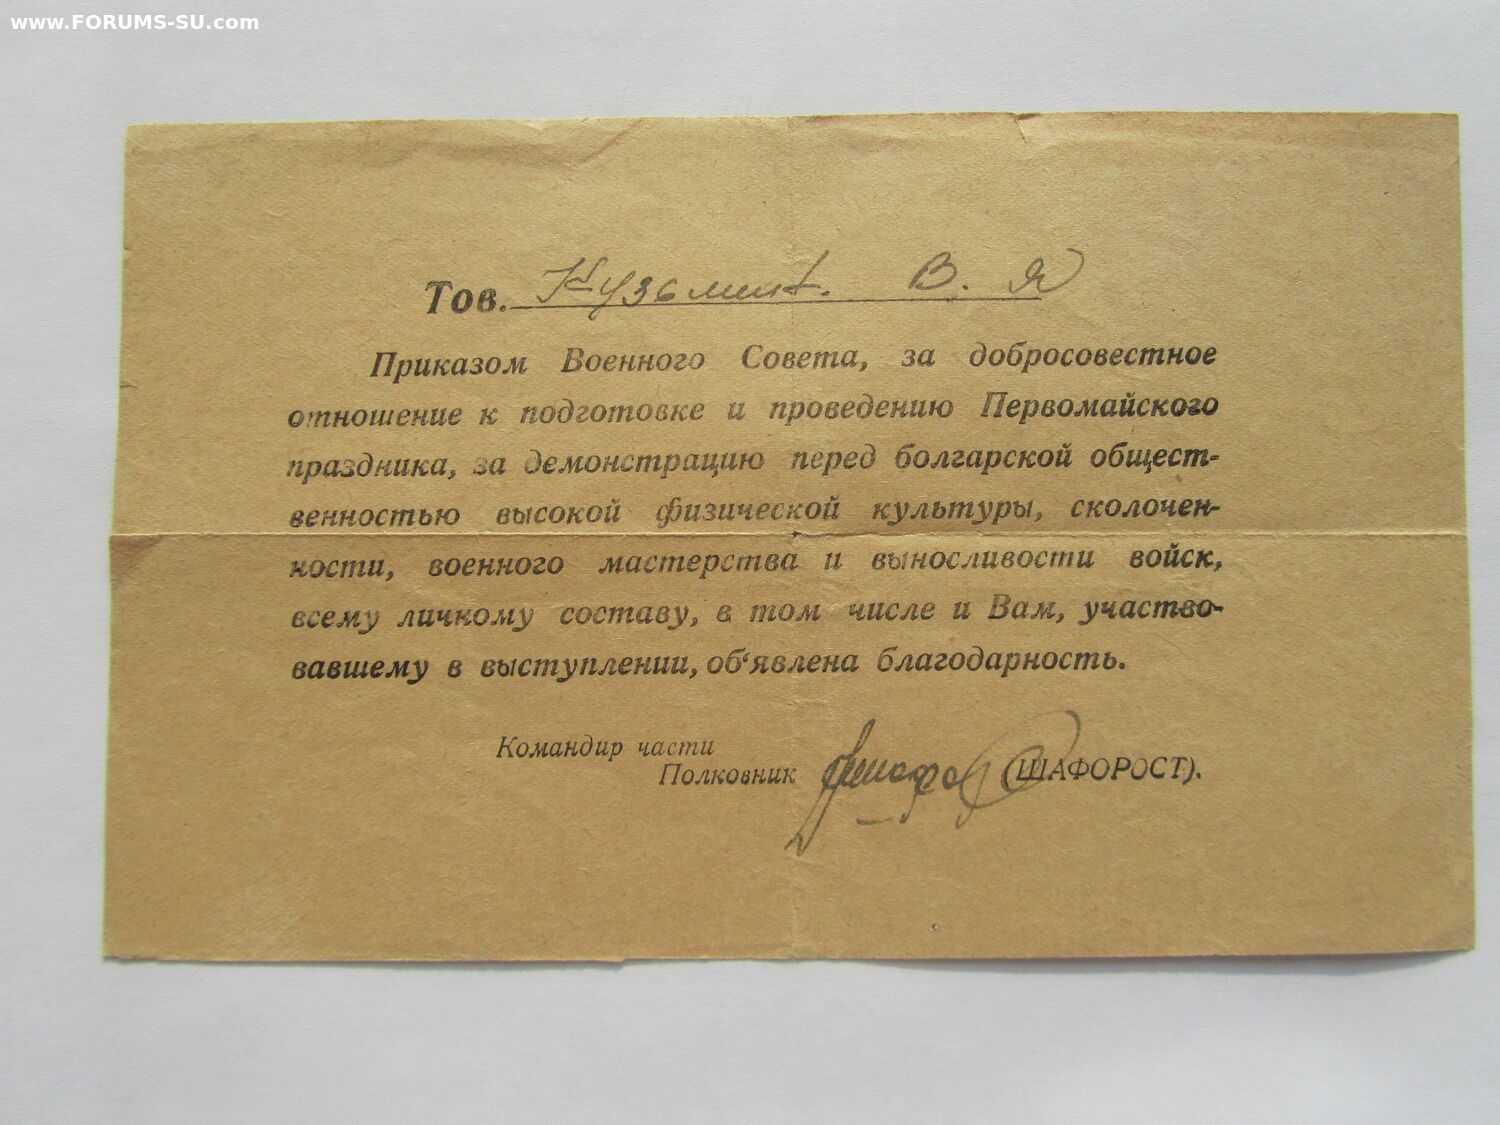 www.FORUMS-SU.com
Тов. Кузьмин. В. Я
Приказом Военного Совета, за добросовестное
отношение к подготовке и проведению Первомайского
праздника, за демонстрацию перед болгарской общест-
венностью высокой физической культуры, сколочен-
ности, военного мастерства и выносливости войск,
всему личному составу, в том числе и Вам, участво-
вавшему в выступлении, об‘явлена благодарность.
Командир части
Полковник (ШАФОРОСТ).